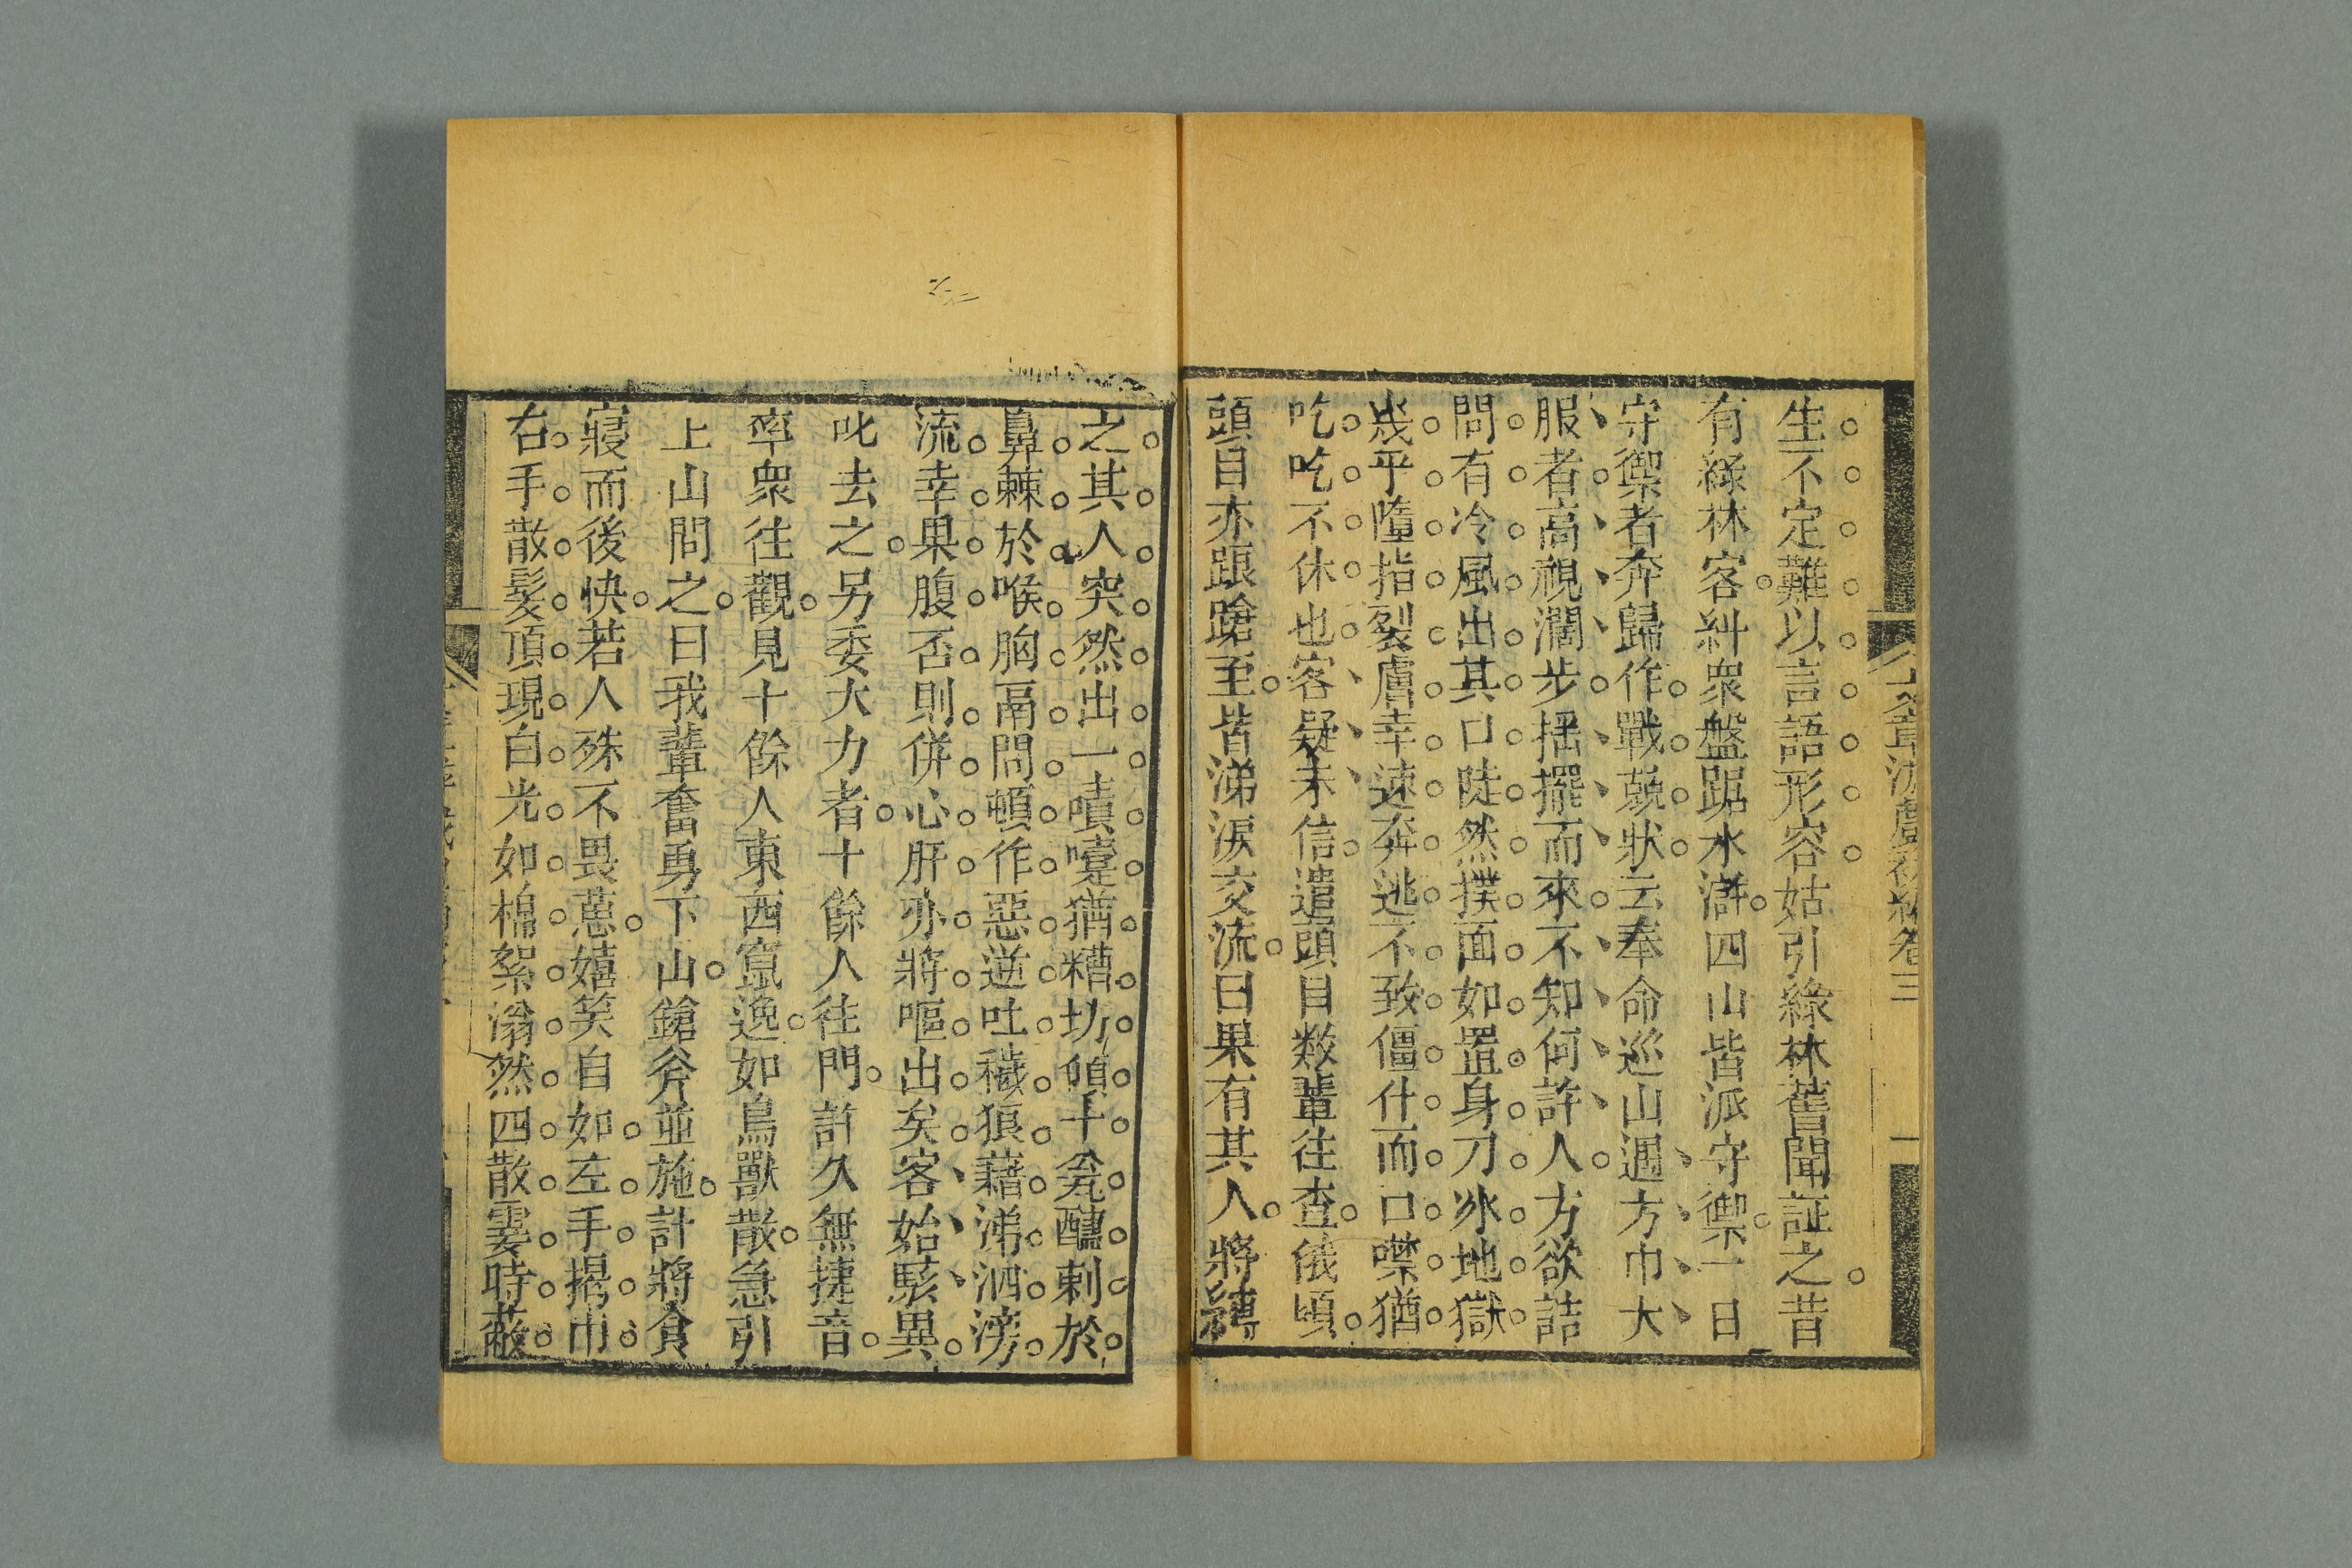 生不定難以言語形容姑引綠林舊聞証之昔
有綠林客糾衆盤踞水滸四山皆派守禦一日
守禦者奔歸作戰兢狀云奉命巡山遇方巾大
服者高視濶步揺擺而來不知何許人方欲詰
問有冷風出其口陡然撲面如置身刀氷地獄
幾乎墮指裂膚幸速奔逃不致僵仆而口噤猶
吃吃不休也客疑未信遣頭目数輩往查俄頃
頭目亦踉蹌至皆涕淚交流曰果有其人將縛
之其人突然出一啧嚏猶糟坊傾十瓮醲剌於
鼻棘於喉胸鬲間頓作惡逆吐穢狼藉涕泗滂
流幸果腹否則併心肝亦將嘔出矣客始駭異
叱去之另委大力者十餘人往門許久無捷音
率衆往觀見十餘人東西竄逸如鳥獸散急引
上山問之曰我輩奮勇下山鎗斧並施計將食
寢而後快若人殊不畏葸嬉笑自如左手揭巾
右手散髮頂現白光如棉絮滃然四散霎時蔽
卷三
一